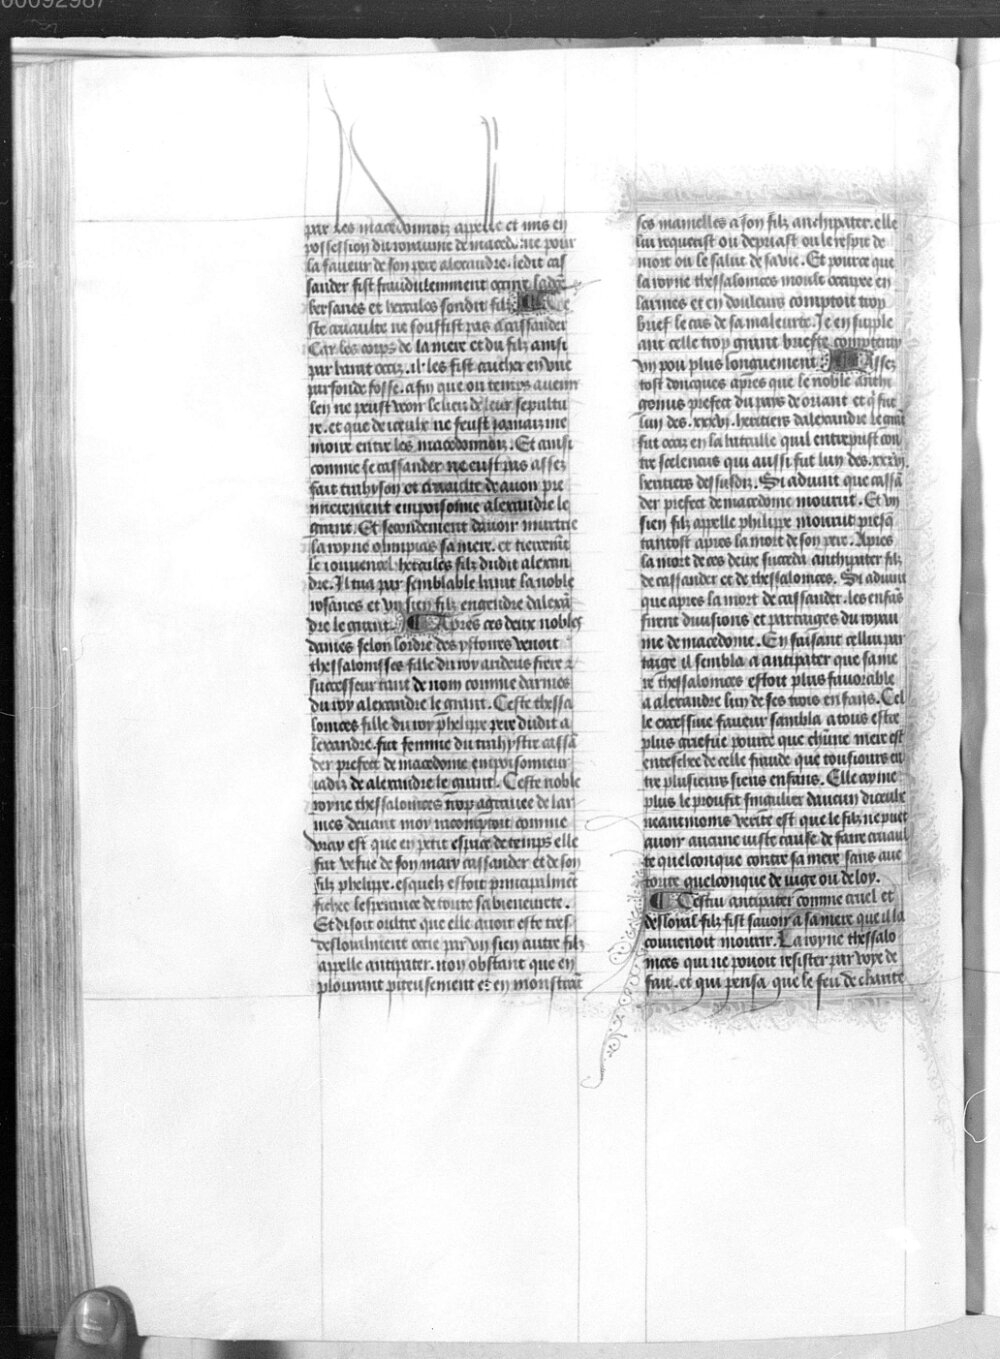 00092987
par les macedonnoiz appelle et mis en
possession du roiaume de maced. ne pour
la faueur de son pere alexandre. ledit cas
sander fist fraudulemment occire
bersanes et hercules sondit filz Ce
ste cruaulte ne souffist pas a cassander
Car les corps de la mere et du filz ainsi
par haine occiz. il les fist ꝯcher en vne
parfonde fosse. afin que ou temps auenir
len ne peust veoir le lieu de leur sepultu
re. et que diceulx ne feust jamaiz me
moire entre les macedonnoiz. Et ainsi
comme se cassander ne eust pas assez
fait trahyson et cruaulte dauoir pre
mierement empoisonne alexandre le
grant. Et secondement dauoir murtrie
la royne olimpias sa mere. et tiercemt̄
le iouuencel hercules filz dudit alexan
dre. Il tua par semblable haine la noble
rosanes et vn sien filz engendre dalexā
dre le grant. Apres ces deux nobles
dames selon lordre des ystoires venoit
thessalonisses fille du roy arideus frere ⁊
successeur tant de nom comme darmes
du roy alexandre le grant. Ceste thessa
lonices fille du roy phelippe pere dudit a
lexandre. fut femme du trahystre cassā
der prefect de macedome empoisonneur
iadiz de alexandre le grant. Ceste noble
royne thessalonices trop agrauee de lar
mes deuant moy racomptoit comme
vray est que en petit espace de temps elle
fut vefue de son mary cassander et de son
filz phelippe. esquelz estoit principalmēt
fichee lesperance de toute sa bieneurte.
Et disoit oultre que elle auoit este tres
desloialment occie par vn sien autre filz
apelle antipater. non obstant que en
plourant piteusement et en monstrāt
ses mamelles a son filz anthipater. elle
lui requeist ou depriast ou le respit de
mort ou le salut de sa vie. Et pource que
la royne thessalonices moult occupee en
larmes et en douleurs comptoit trop
brief le cas de sa maleurte. Je en supple
ant celle trop grant briefte compteray
vn pou plus longuement. Assez
tost doncques apres que le noble anthi
gonus prefect du pays de oriant et q̄ fut
lun des .xxxvi. heritiers dalexandre le grāt
fut occiz en la bataille quil entreprist con
tre seleucus qui aussi fut lun des .xxxvi.
heritiers dessusdiz. Si aduint que cassā
der prefect de macedome mourut. Et vn
sien filz appelle philippe mourut presq̄
tantost apres la mort de son pere. Apres
la mort de ces deux succeda anthipater filz
de cassander et de thessalonices. Si aduint
que apres la mort de cassander. les enfās
firent diuisions et partaiges du royau
me de macedome. En faisant cellui par
taige il sembla a antipater que sa me
re thessalonices estoit plus fauorable
a alexandre lun de ses trois enfans. Cel
le excessiue faueur sembla a tous estre
plus griefue pource que chūne mere est
entechee de celle fraude que tousiours en
tre plusieurs siens enfans. Elle ayme
plus le proufit singulier daucun diceulx
neantmoins verite est que le filz ne puet
auoir aucune iuste cause de faire cruaul
te quelconque contre sa mere sans auc
torite quelconque de iuge ou de loy.
Cestui antipater comme cruel et
desloyal filz fist sauoir a sa mere que il la
couuenoit mourir. La royne thessalo
nices qui ne pouoit resister par voye de
fait. et qui pensa que le feu de charite